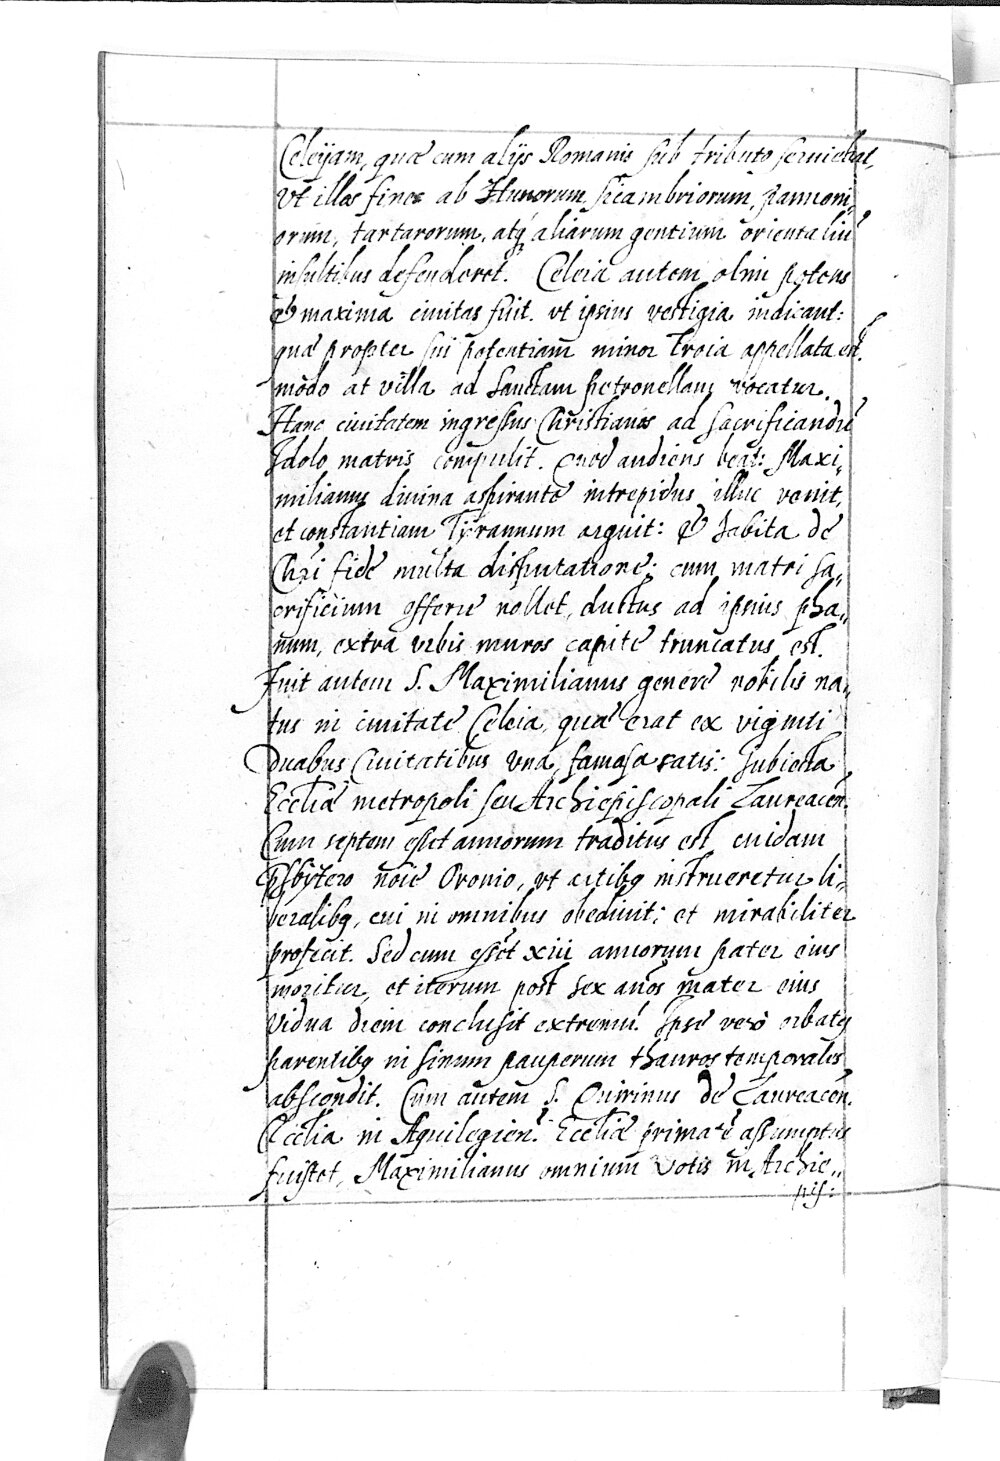 Celeijam, quæ cum alijs Romanis sub tributo seruiebat,
Vt illos fines ab Hunorum, sicambriorum, pannoni,,
orum, tartarorum, atq3 aliarum gentium orientaliũ
insultibus defenderet. Celeia autem olim potens
& maxima ciuitas fuit. vt ipsius vestigia indicant:
quæ propter sui potentiam minor Troia appellata est.
modo at villa ad Sanctam petronellam vocatur.
Hanc ciuitatem ingressus Christianos ad sacrificandũ
Idolo matris compulit. Quod audiens beat: Maxi,,
milianus diuina aspirante intrepidus illuc venit,
et constantiam Tyrannum arguit: & habita de
Chri fide multa disputatione; cum matri sa,,
crificium offerre nollet, ductus ad ipsius pha,,
num, extra vrbis muros capite truncatus est.
Fuit autem S. Maximilianus genere nobilis na,,
tus in ciuitate Celeia, quæ erat ex viginti
Duabus Ciuitatibus vna, famosa satis: subiecta
Eccliæ metropoli seu Archiepiscopali Laureaceñ.
Cum septem esset annorum traditus est cuidam
p̄sbytero noiē Oronio, vt artibq instrueretur li,,
beralibq, cui in omnibus obediuit; et mirabiliter
proficit. Sed cum esset xiii annorum pater eius
moritur, et iterum post sex anōs mater eius
Vidua diem conclusit extremũ. Ipse verò orbatq
parentibq in sinum pauperum thauros temporales
abscondit. Cum autem S. Quirinus de Laureaceñ.
Ecclia in Aquilegien̄. Eccliæ primatē assumptus
fuisset, Maximilianus omnium votis in Archie,,
pis: